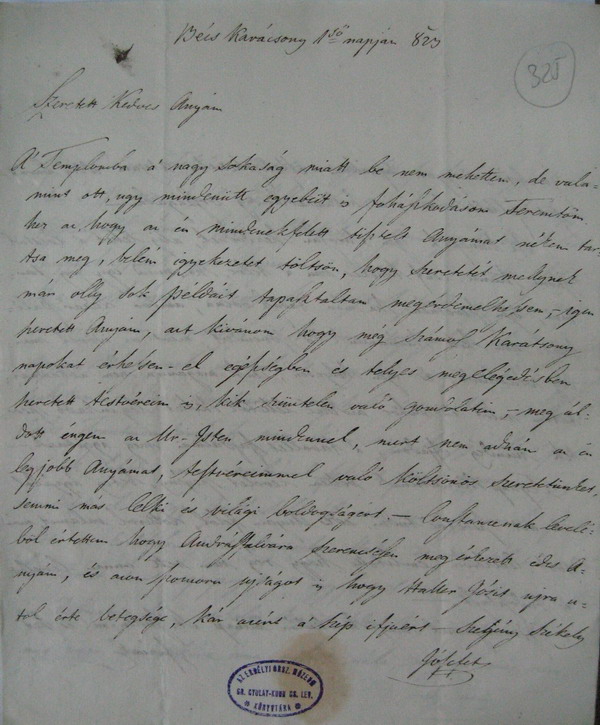 Bécs Karácsony 1ső napján 823
325
Szeretett Kedves Anyám
A' Templomba á nagy sokaság miatt be nem mehettem, de vala-
mint ott, ugy mindenütt egyebütt is foházkodásom Teremtöm
hez az, hogy az én mindenekfelett tisztelt Anyámat nékem tar-
tsa meg, belém igyekezetet töltsön, hogy szeretetét melynek
már olly sok példáit tapasztaltam megérdemelhessem, – igen
szeretett Anyám, azt kivánom hogy még számos Karátsony
napokat érhessen-el egésségben és tellyes megelégedésben
szeretett testvéreim is, kik szüntelen való gondolatim, – meg ál-
dott éngem az Ur-Isten mindennel, mert nem adnám az én
legjobb Anyámat, testvéreimmel való költsönös szeretetünket,
semmi más lelki és világi boldogságért. – Constancenak levelé-
ből értettem hogy Andrásfalvára szerentsésen megérkezett édes A-
nyám, és azon szomoru ujságot is hogy Haller Jósit ujra u-
tol érte betegsége, kár azért á szép ifjuért – szegény Székely
Jósefet
AZ ERDÉLYI ORSZ. MÚZEUM
GR. GYULAY-KUUN GS. LEV.
KÖNYVTÁRA